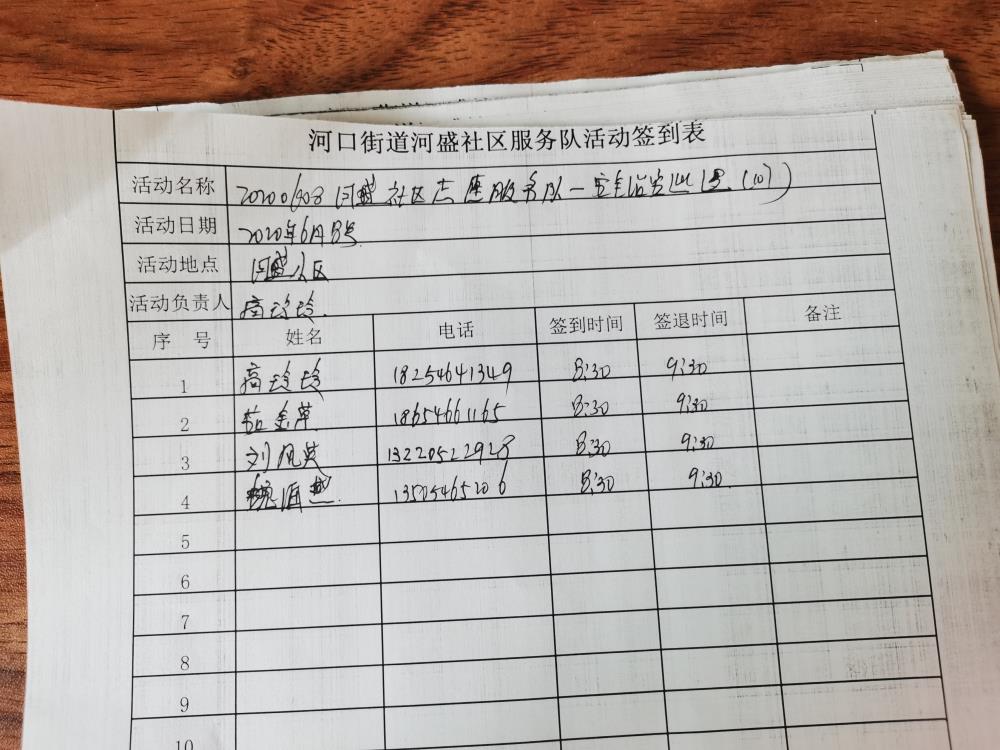 河口街道河盛社区服务队活动签到表
活动名称 20200608河盛社区志愿服务队一安全治安巡逻(10)
活动日期 2020年6月8号
活动地点 河盛社区
活动负责人 高玲玲
序号 姓名 电话 签到时间 签退时间 备注
1 高玲玲 18254641349 8:30 9:30
2 茹金萍 18654661165 8:30 9:30
3 刘凤英 13220522928 8:30 9:30
4 13505465206 8:30 9:30
5
6
7
8
9
10